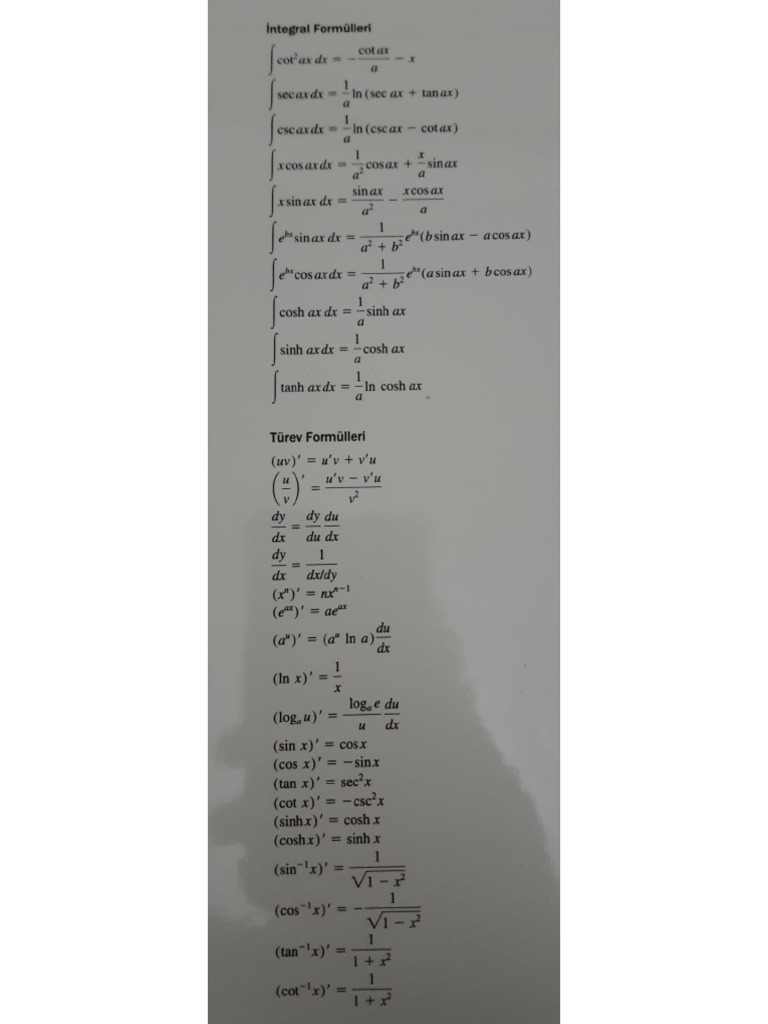 İntegral Formülleri
∫ cot² ax dx = − cot ax / a − x
∫ sec ax dx = 1/a ln (sec ax + tan ax)
∫ csc ax dx = 1/a ln (csc ax − cot ax)
∫ x cos ax dx = 1/a² cos ax + x/a sin ax
∫ x sin ax dx = sin ax / a² − x cos ax / a
∫ e^{bx} sin ax dx = 1/(a² + b²) e^{bx} (b sin ax − a cos ax)
∫ e^{bx} cos ax dx = 1/(a² + b²) e^{bx} (a sin ax + b cos ax)
∫ cosh ax dx = 1/a sinh ax
∫ sinh ax dx = 1/a cosh ax
∫ tanh ax dx = 1/a ln cosh ax
Türev Formülleri
(uv)′ = u′v + v′u
(u/v)′ = (u′v − v′u)/v²
dy/dx = dy/du du/dx
dy/dx = 1/(dx/dy)
(xⁿ)′ = nxⁿ⁻¹
(e^{ax})′ = ae^{ax}
(a^u)′ = (a^u ln a) du/dx
(ln x)′ = 1/x
(logₐ u)′ = logₐ e / u du/dx
(sin x)′ = cos x
(cos x)′ = −sin x
(tan x)′ = sec² x
(cot x)′ = −csc² x
(sinh x)′ = cosh x
(cosh x)′ = sinh x
(sin⁻¹ x)′ = 1/√(1 − x²)
(cos⁻¹ x)′ = − 1/√(1 − x²)
(tan⁻¹ x)′ = 1/(1 + x²)
(cot⁻¹ x)′ = 1/(1 + x²)